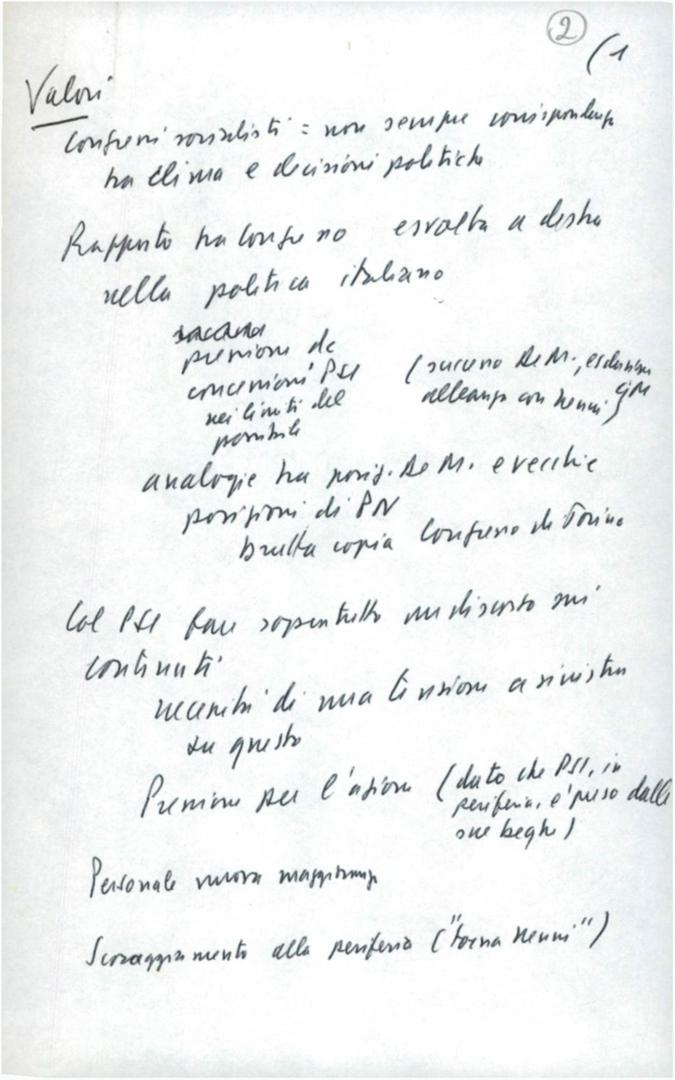 2
(1
Valori
Congressi socialisti = non sempre corrispondenza
tra clima e decisioni politiche
Rapporto tra Congresso e svolta a destra
nella politica italiana
pressione dc
concessioni PSI
nei limiti del
possibile
(successo De M., esclusione
alleanza con Nenni)
analogie tra posiz. De M. e vecchie
posizioni di PN
brutta copia Congresso di Torino
Col PSI fare soprattutto un discorso sui
contenuti
necessità di una tensione a sinistra
su questo
Pressione per l'azione (dato che PSI, in
periferia, è preso dalle
sue beghe)
Personale nuova maggioranza
Scoraggiamento alla periferia ("torna Nenni")